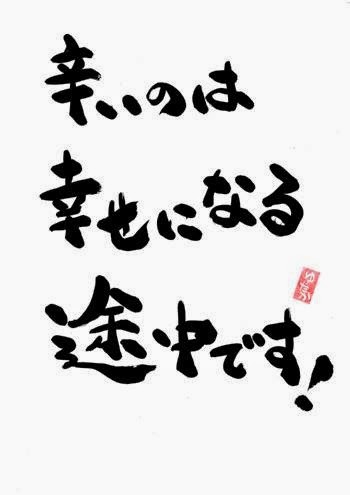 辛いのは
幸せになる
途中です!